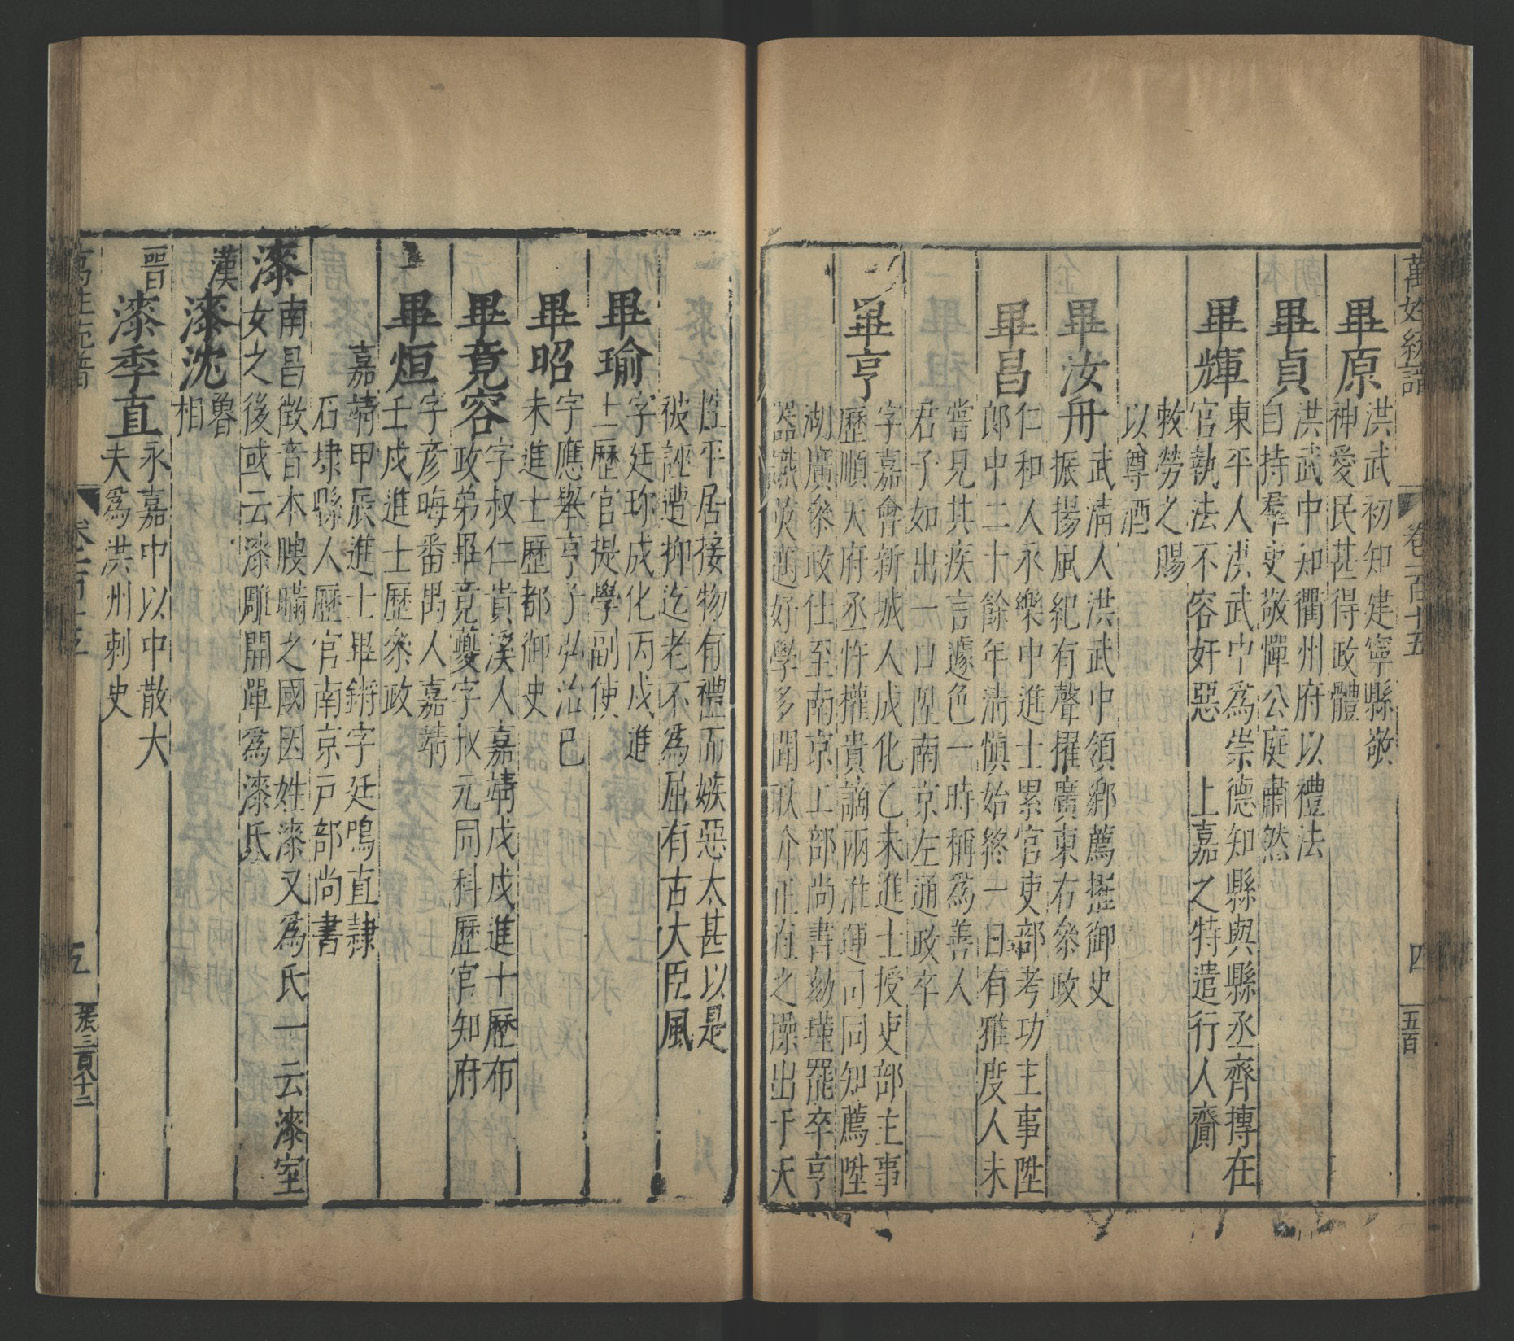 萬姓統譜 卷一百十五 四 五百
畢原 洪武初知建寧縣敬
神愛民甚得政體
畢貞 洪武中知衢州府以禮法
自持羣吏敬憚公庭肅然
畢輝 東平人洪武中為崇德知縣與縣丞齊摶在
官執法不容奸惡 上嘉之特遣行人齎
敕勞之賜
以尊酒
畢汝舟 武清人洪武中領鄉薦擢御史
振揚風紀有聲擢廣東右叅政
畢昌 仁和人永樂中進士累官吏部考功主事陞
郎中二十餘年清慎始終一日有雅度人未
嘗見其疾言遽色一時稱為善人
君子如出一口陞南京左通政卒
畢亨 字嘉會新城人成化乙未進士授吏部主事
歷順天府丞忤權貴謫兩淮運司同知薦陞
湖廣叅政仕至南京工部尚書劾瑾罷卒亨
器識淡邁好學多聞耿介正直之操出于天
性平居接物有禮而嫉惡太甚以是
被誣遭抑迄老不為屈有古大臣風
畢瑜 字廷珍成化丙戌進
士歷官提學副使
畢昭 字應舉亨子弘治己
未進士歷都御史
畢竟容 字叔仁貴溪人嘉靖戊戌進士歷布
政弟畢竟夔字叔元同科歷官知府
畢烜 字彥晦番禺人嘉靖
壬戌進士歷叅政
嘉靖甲辰進士畢鏘字廷鳴直隸
石埭縣人歷官南京戶部尚書
漆 南昌徵音本膄瞞之國因姓漆又為氏一云漆室
女之後或云漆雕開單為漆氏
漢 漆沈 魯
相
晉 漆季直 永嘉中以中散大
夫為洪州刺史
萬姓統譜 卷一百十五 五 張三百八十二